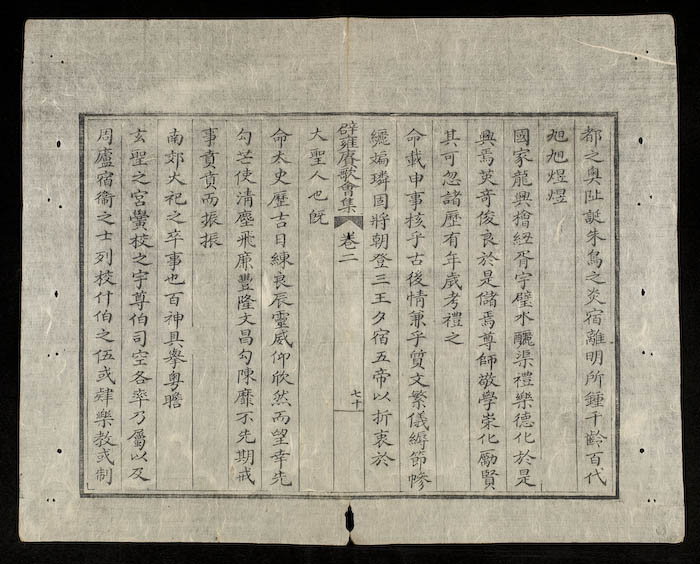 都之奧阯誕朱鳥之炎宿離明所鍾千齡百代
旭旭煜煜
國家龍興檜經胥宇璧水釃渠禮樂德化於是
興焉英奇俊良於是儲焉尊師敬學崇化勵賢
其可忽諸歷有年歲考禮之
命載申事核乎古後情兼乎質文繁儀縟節幓
纚㻞璘固將朝登三王夕宿五帝以折衷於
辟雍賡歌會集 卷二 七十
大聖人也旣
命太史歷吉日練良辰靈威仰欣然而望幸先
勾芒使清塵飛廉豐隆文昌勾陳靡不先期戒
事賁賁而振振
南郊大祀之卒事也百神具舉粵瞻
玄聖之宮黌校之宇尊伯司空各率乃屬以及
周廬宿衞之士列校什伯之伍或肄樂教或制